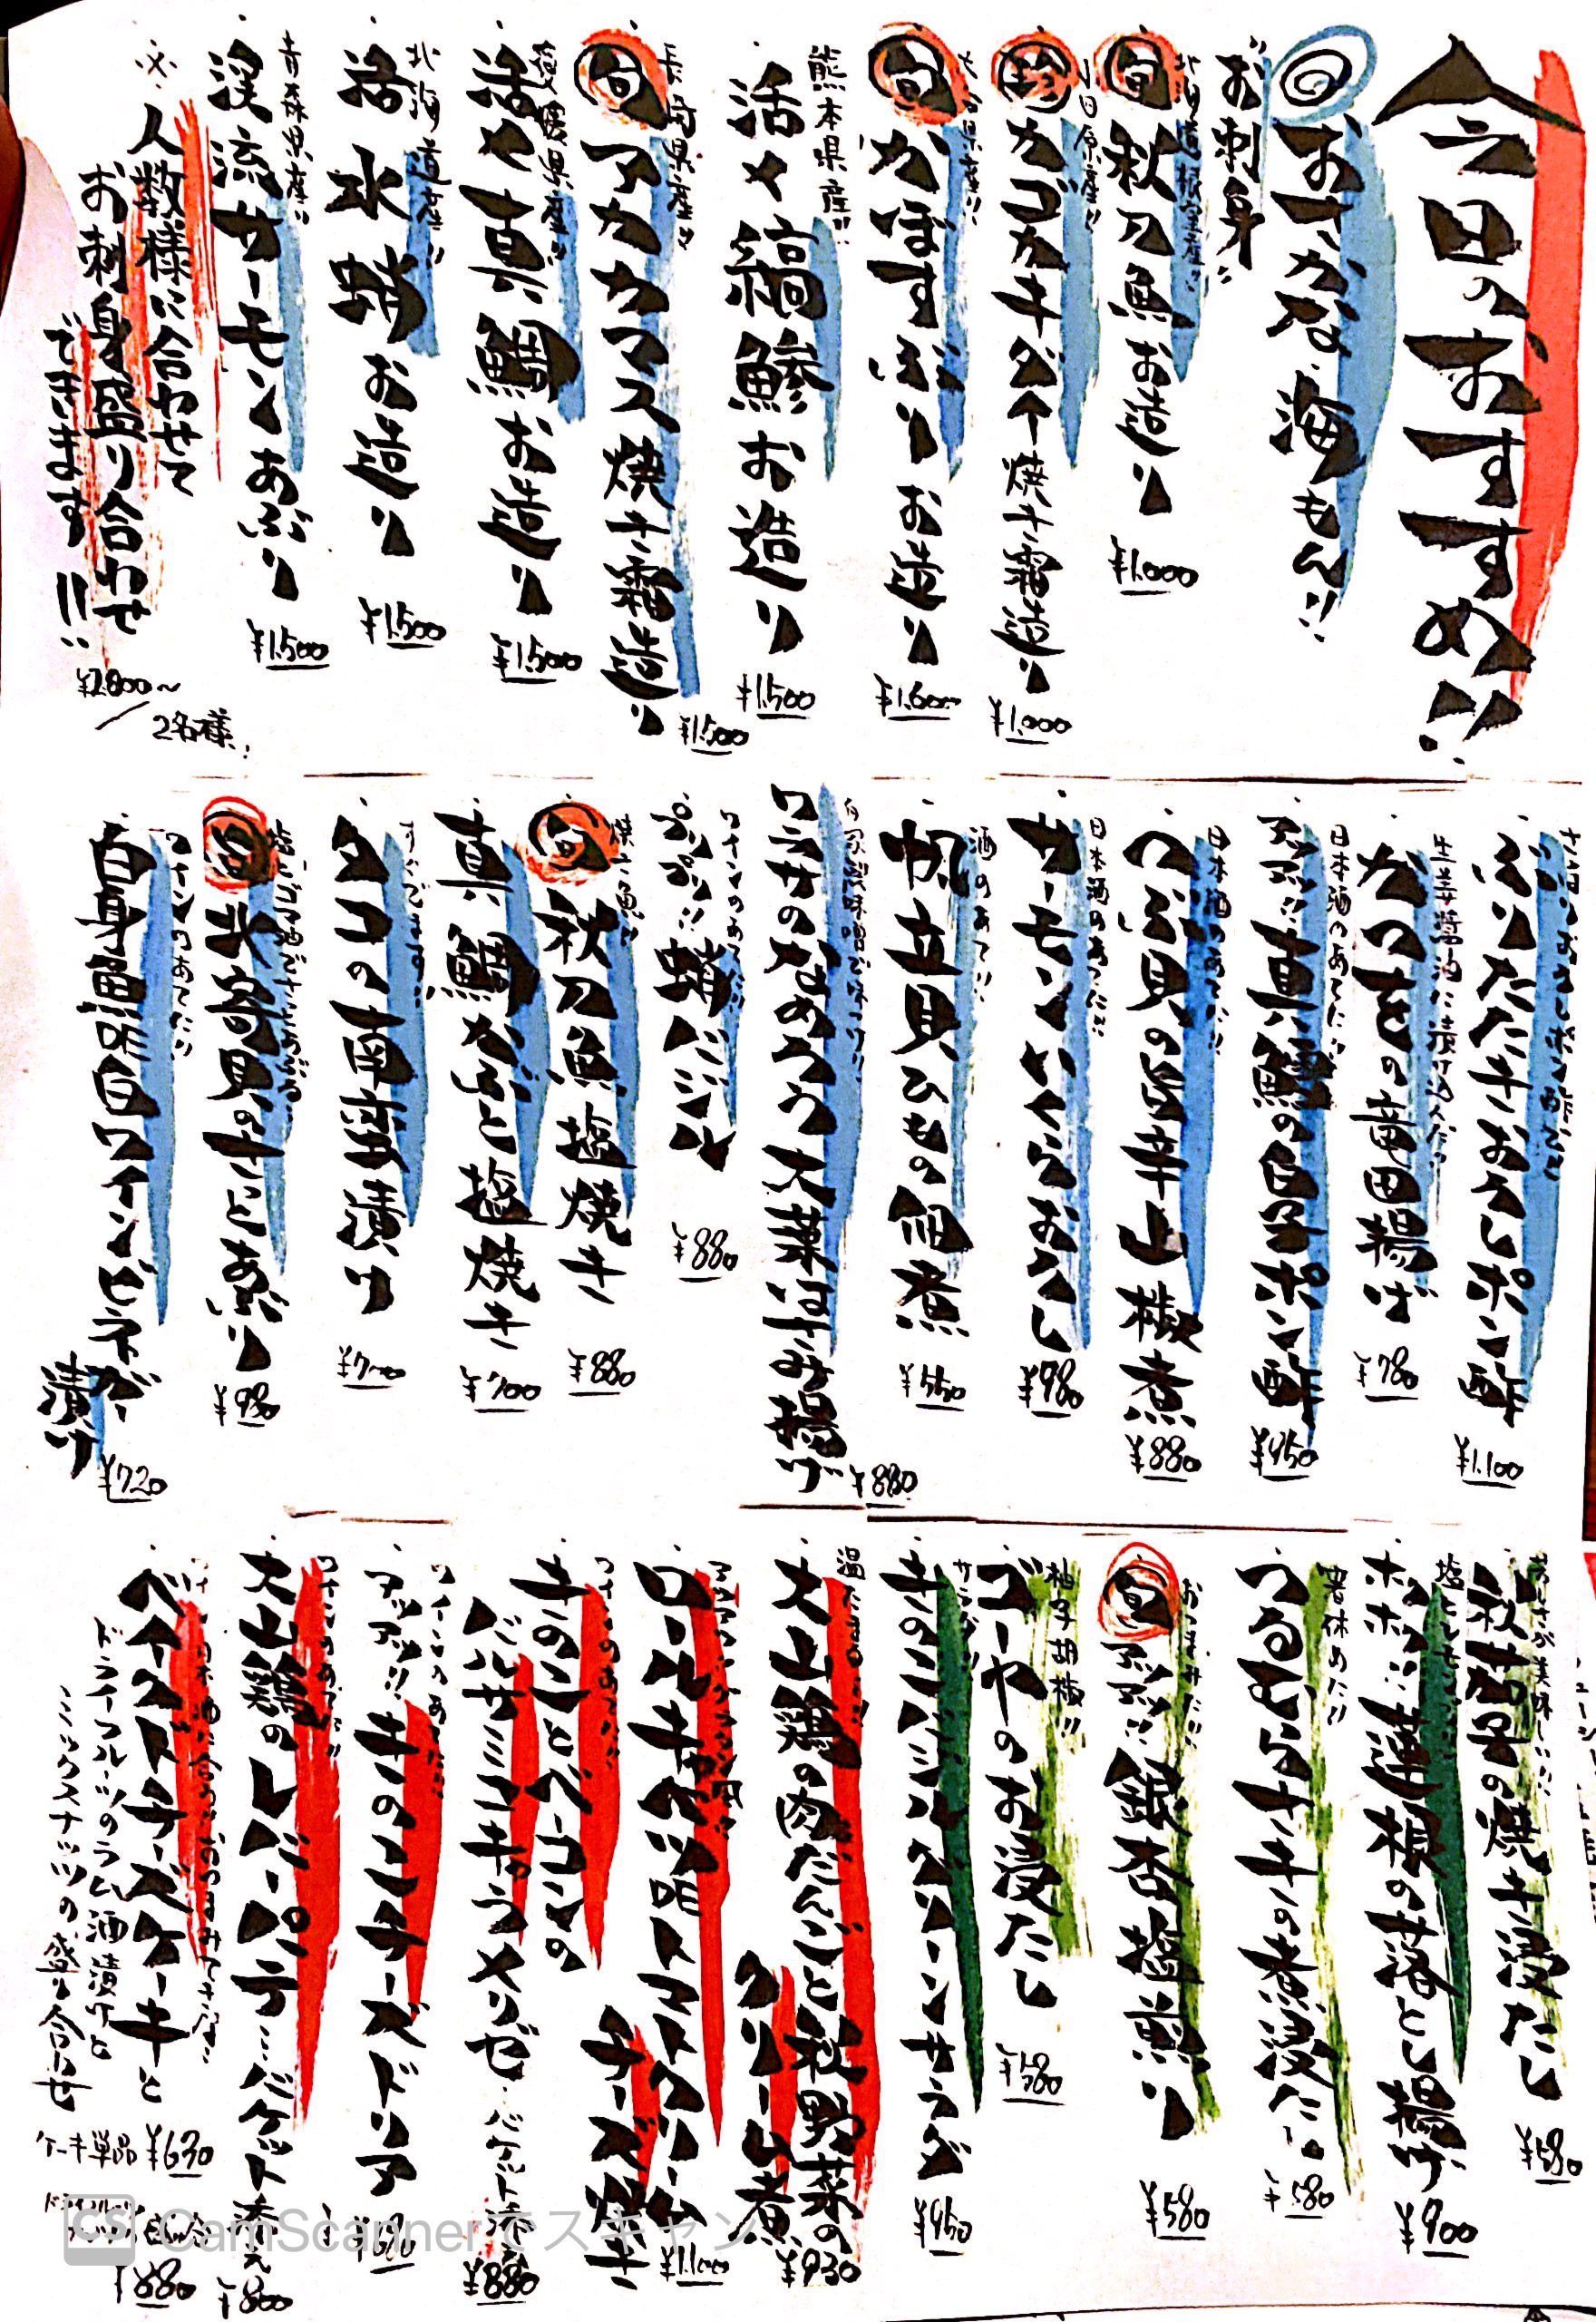 今日のおすすめ!!
◎おさかな、海もん!!
"お刺身"
旬 北海道根室産!!
秋刀魚お造り ¥1.000
珍
カゴカキダイ焼き霜造り ¥1.000
旬 大分県産!!
かぼすぶりお造り ¥1.600
熊本県産!!
活〆縞鯵お造り ¥1.500
旬 長崎県産!!
アカカマス焼き霜造り ¥1.500
愛媛県産!!
活〆真鯛お造り ¥1.500
北海道産!!
活水蛸お造り ¥1.500
青森県産!!
渓流サーモンあぶり ¥1.500
※人数様に合わせて
お刺身盛り合わせ
できます!!
2名様
ぶりたたきおろしポン酢 ¥1.100
生姜醤油に漬け込んだ
かつをの竜田揚げ ¥780
日本酒のあてに!!
真鱈の白子ポン酢 ¥950
日本酒のあてに!!
つぶ貝の旨辛山椒煮 ¥880
日本酒のあてに!!
サーモンといくらおろし ¥980
酒のあて!!
帆立貝ひもの佃煮 ¥550
ワニ井のなめろう大葉はさみ揚げ ¥880
ワインのあてに!!
プリプリ!!蛸バジル ¥880
旬 焼き魚!!
秋刀魚塩焼き ¥880
真鯛かぶと塩焼き ¥700
すぐでます!!
タコの南蛮漬け ¥700
旬
北寄貝のさっとあぶり ¥980
ワインのあてに!!
白身魚の白ワインビネガー漬け ¥720
秋茄子の焼き浸たし ¥580
ホクホク!!蓮根の落とし揚げ ¥900
箸休めに!!
つるむらさきの煮浸たし ¥580
旬 おつまみに!!
銀杏塩煎り ¥580
柚子胡椒!!
ゴーヤのお浸たし ¥580
サラダ!!
きのこシーザーサラダ ¥950
温たまのせ!!
大山鶏の肉だんごと秋野菜のクリーム煮 ¥930
ロールキャベツ 〜トマトクリームチーズ焼き ¥1.100
ワインのあてに!!
きのことベーコンのバルサミコキャラメリゼ・バケット添え ¥880
ワインのあてに!!
アツアツ!!きのこチーズドリア
ワインのあて!!
大山鶏のレバーパテ…バケット添え ¥800
ベイクドチーズケーキと
ドライフルーツのラム酒漬けと
ミックスナッツの盛り合わせ
ケーキ単品 ¥630
¥880
CS CamScannerでスキャン